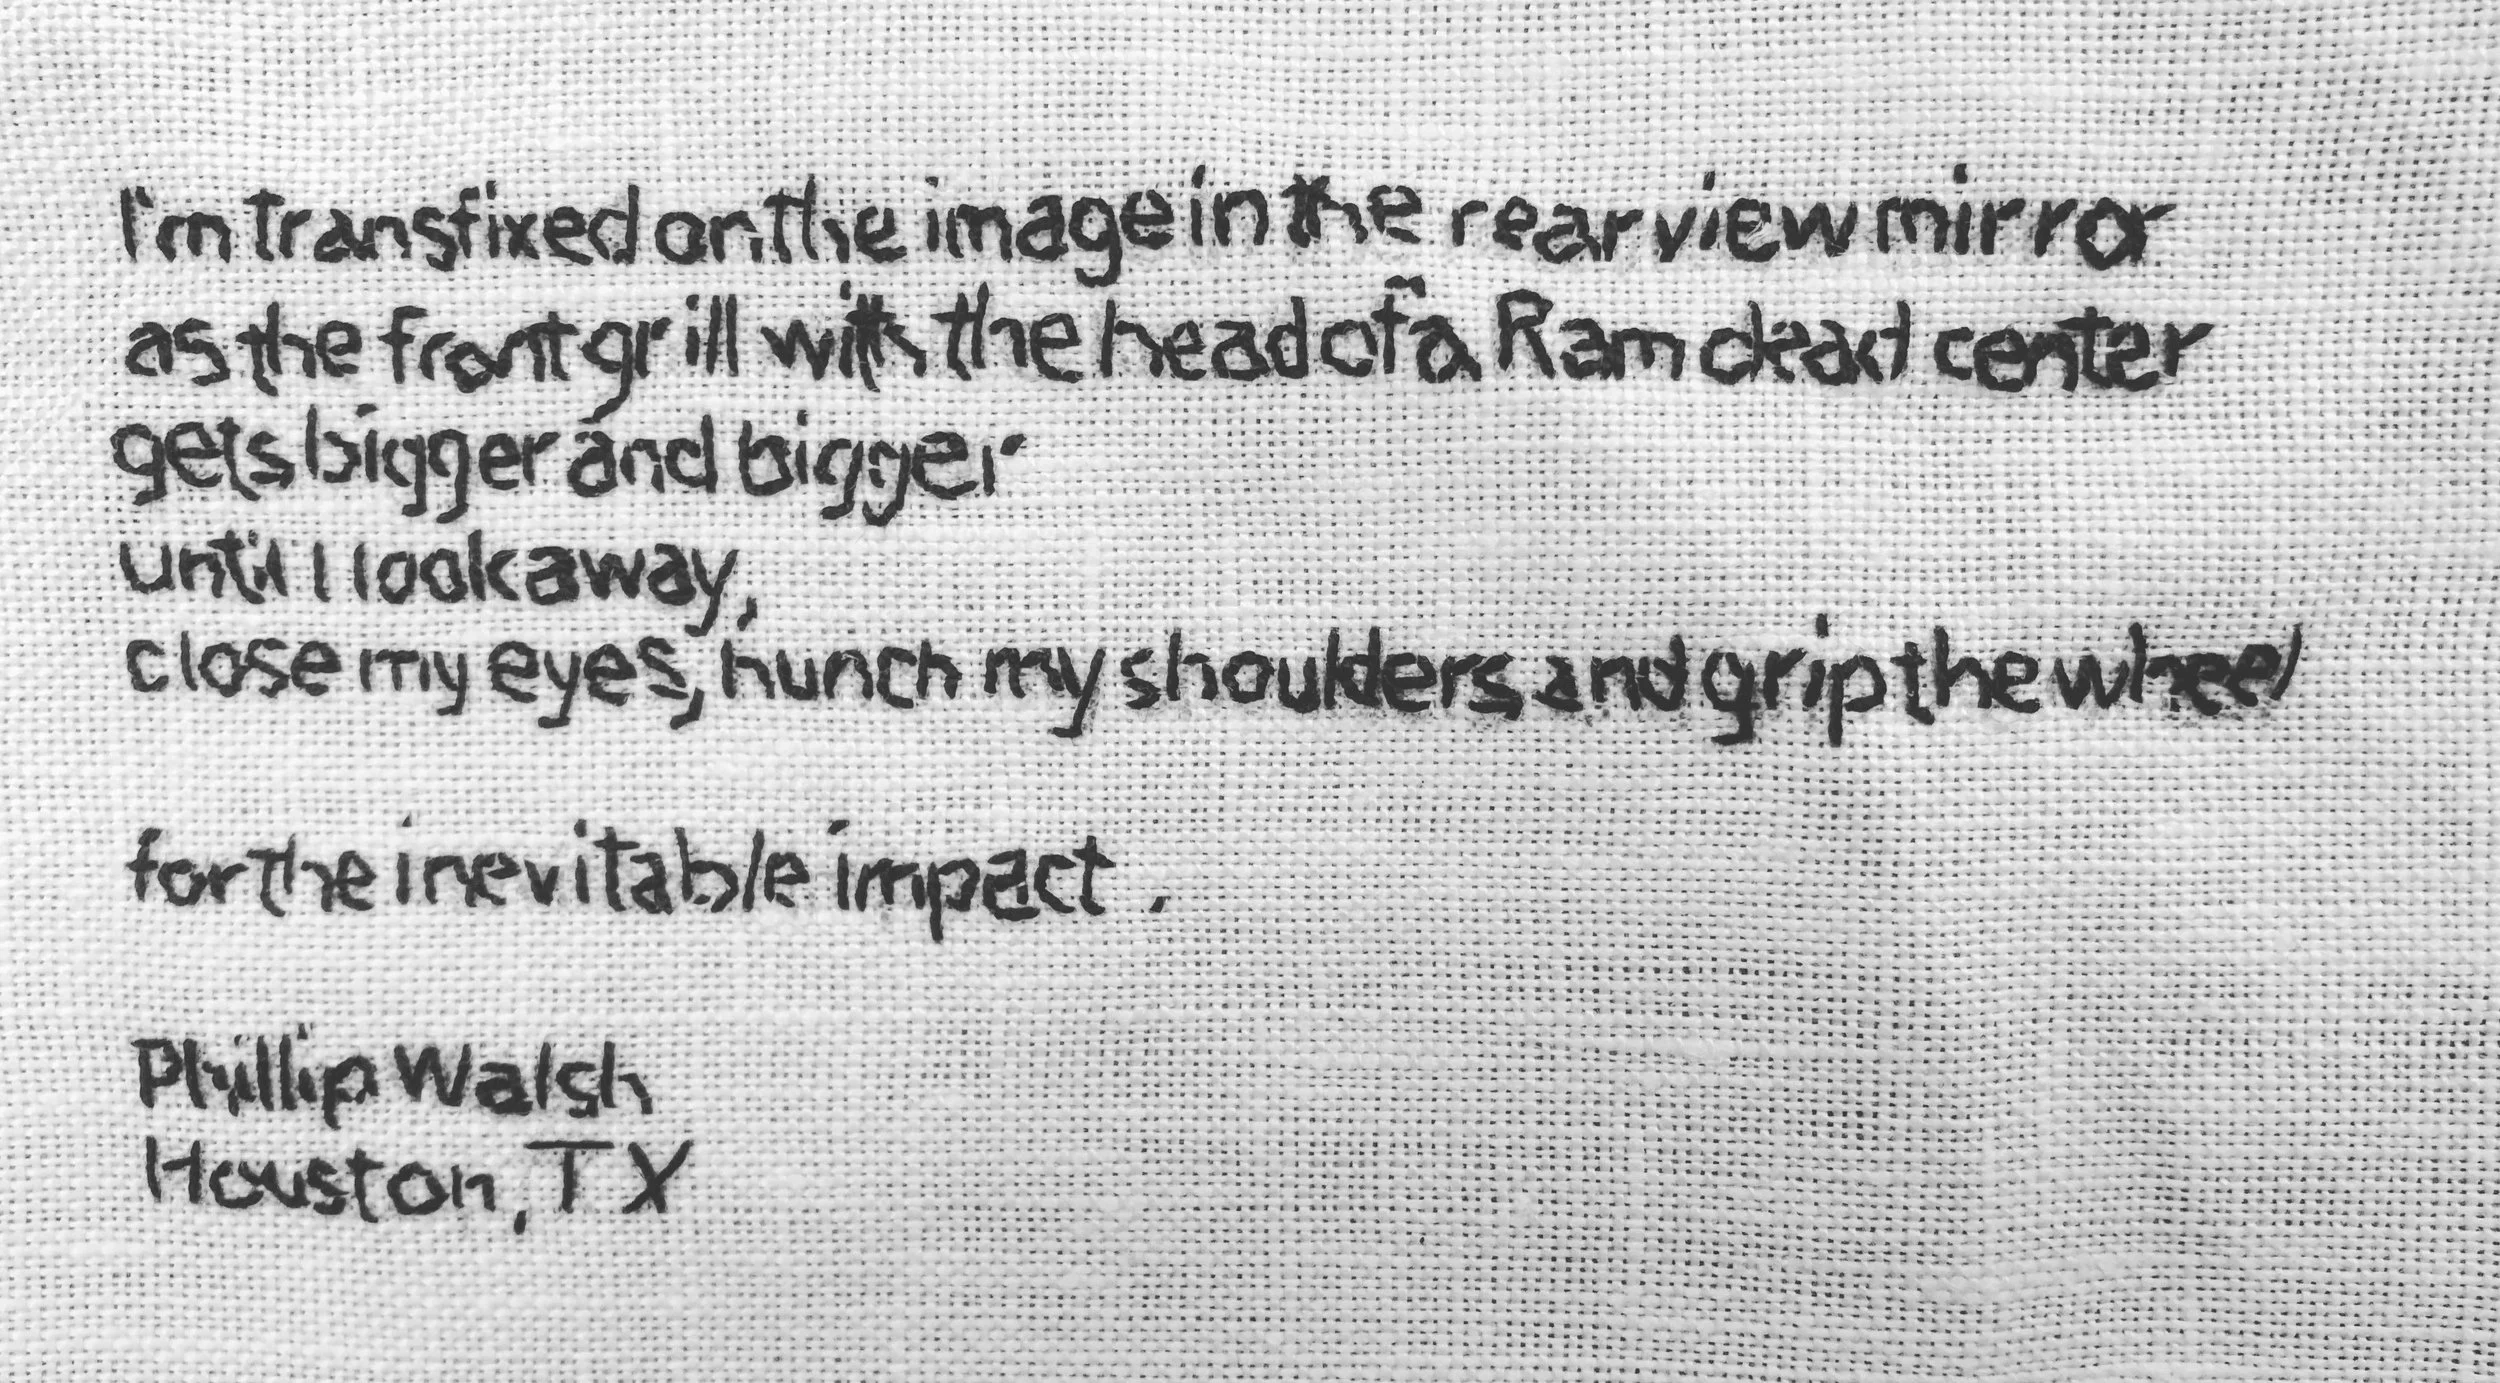 I'm transfixed on the image in the rear view mirror
as the front grill with the head of a Ram dead center
gets bigger and bigger
until I look away,
close my eyes, hunch my shoulders and grip the wheel
for the inevitable impact.
Phillip Walsh
Houston, TX